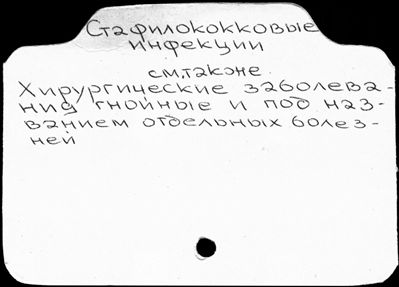 Стафилококковые
инфекции
см.также
Хирургические заболева-
ния гнойные и под наз-
ванием отдельных болез-
ней